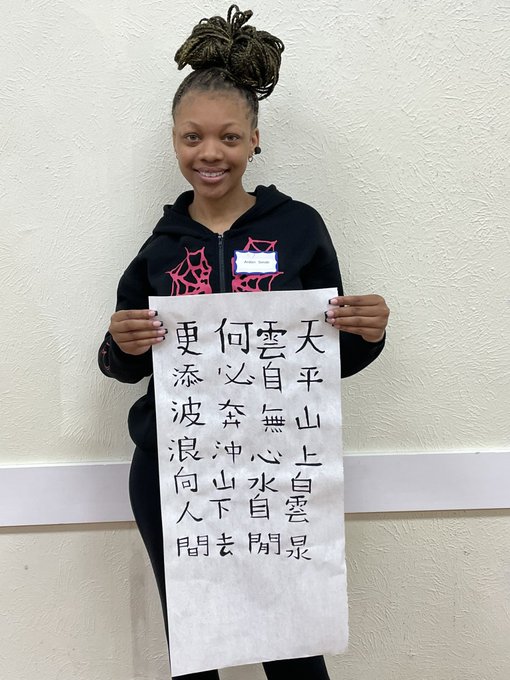 天平山上白雲泉
雲自無心水自閒
何必奔沖山下去
更添波浪向人間